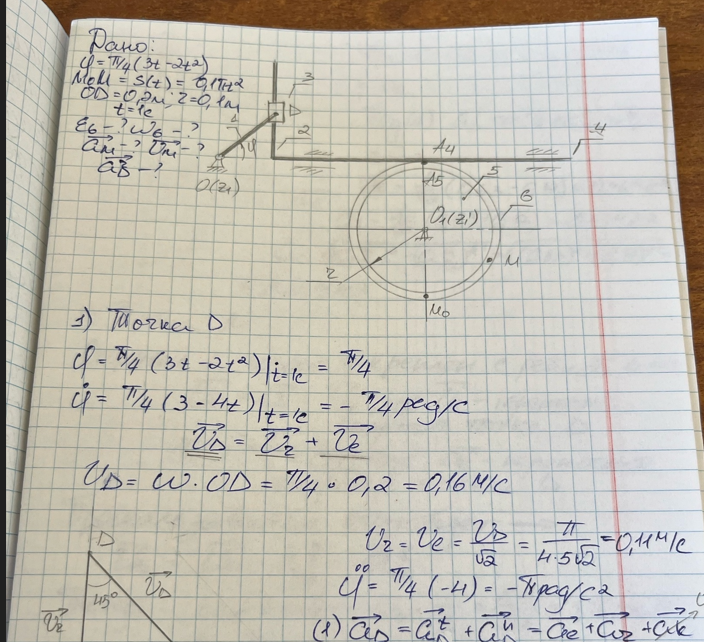 Дано:
φ = π/4 (3t - 2t²)
M₀M = S(t) = 0,1πt²
OD = 0,2м; r = 0,1м
t = 1c
ε₆ - ? ω₆ - ?
a⃗м - ? v⃗м - ?
3
D
1
φ
2
O(z₁)
A₄
4
A₅
5
6
O₁(z₁')
r
M
M₀
1) Точка D
φ = π/4 (3t - 2t²)|t=1c = π/4
φ̇ = π/4 (3 - 4t)|t=1c = - π/4 рад/с
v⃗D = v⃗r + v⃗e
vD = ω · OD = π/4 · 0,2 = 0,16 м/с
vr = ve = vD/√2 = π/(4·5√2) = 0,11 м/с
D
45°
v⃗D
v⃗r
φ̈ = π/4 (-4) = -π рад/с²
(1) a⃗D = a⃗Dᵗ + a⃗Dⁿ = a⃗e + a⃗r + a⃗к